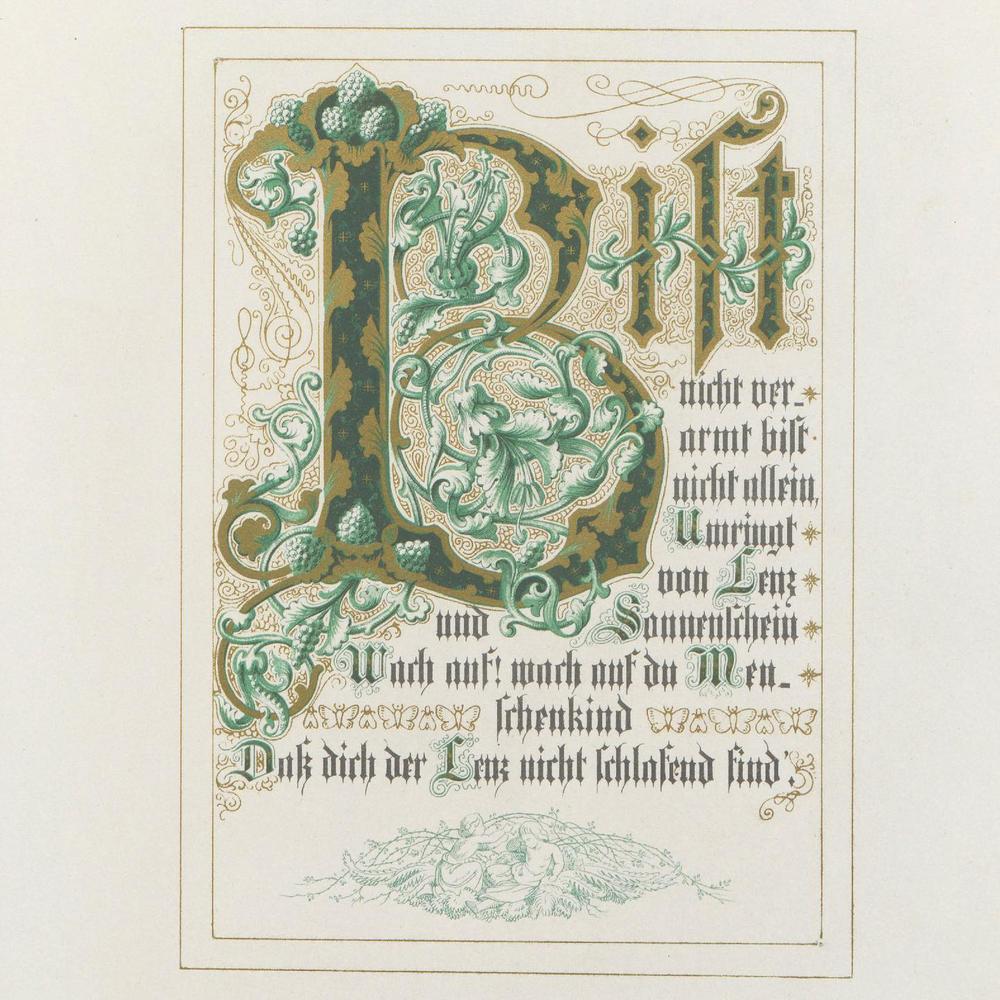 Bist
nicht ver-
armt bist
nicht allein,
Umringt
von Lenz
und Sonnenschein
Wach auf! wach auf du Men-
schenkind
Daß dich der Lenz nicht schlafend find'.